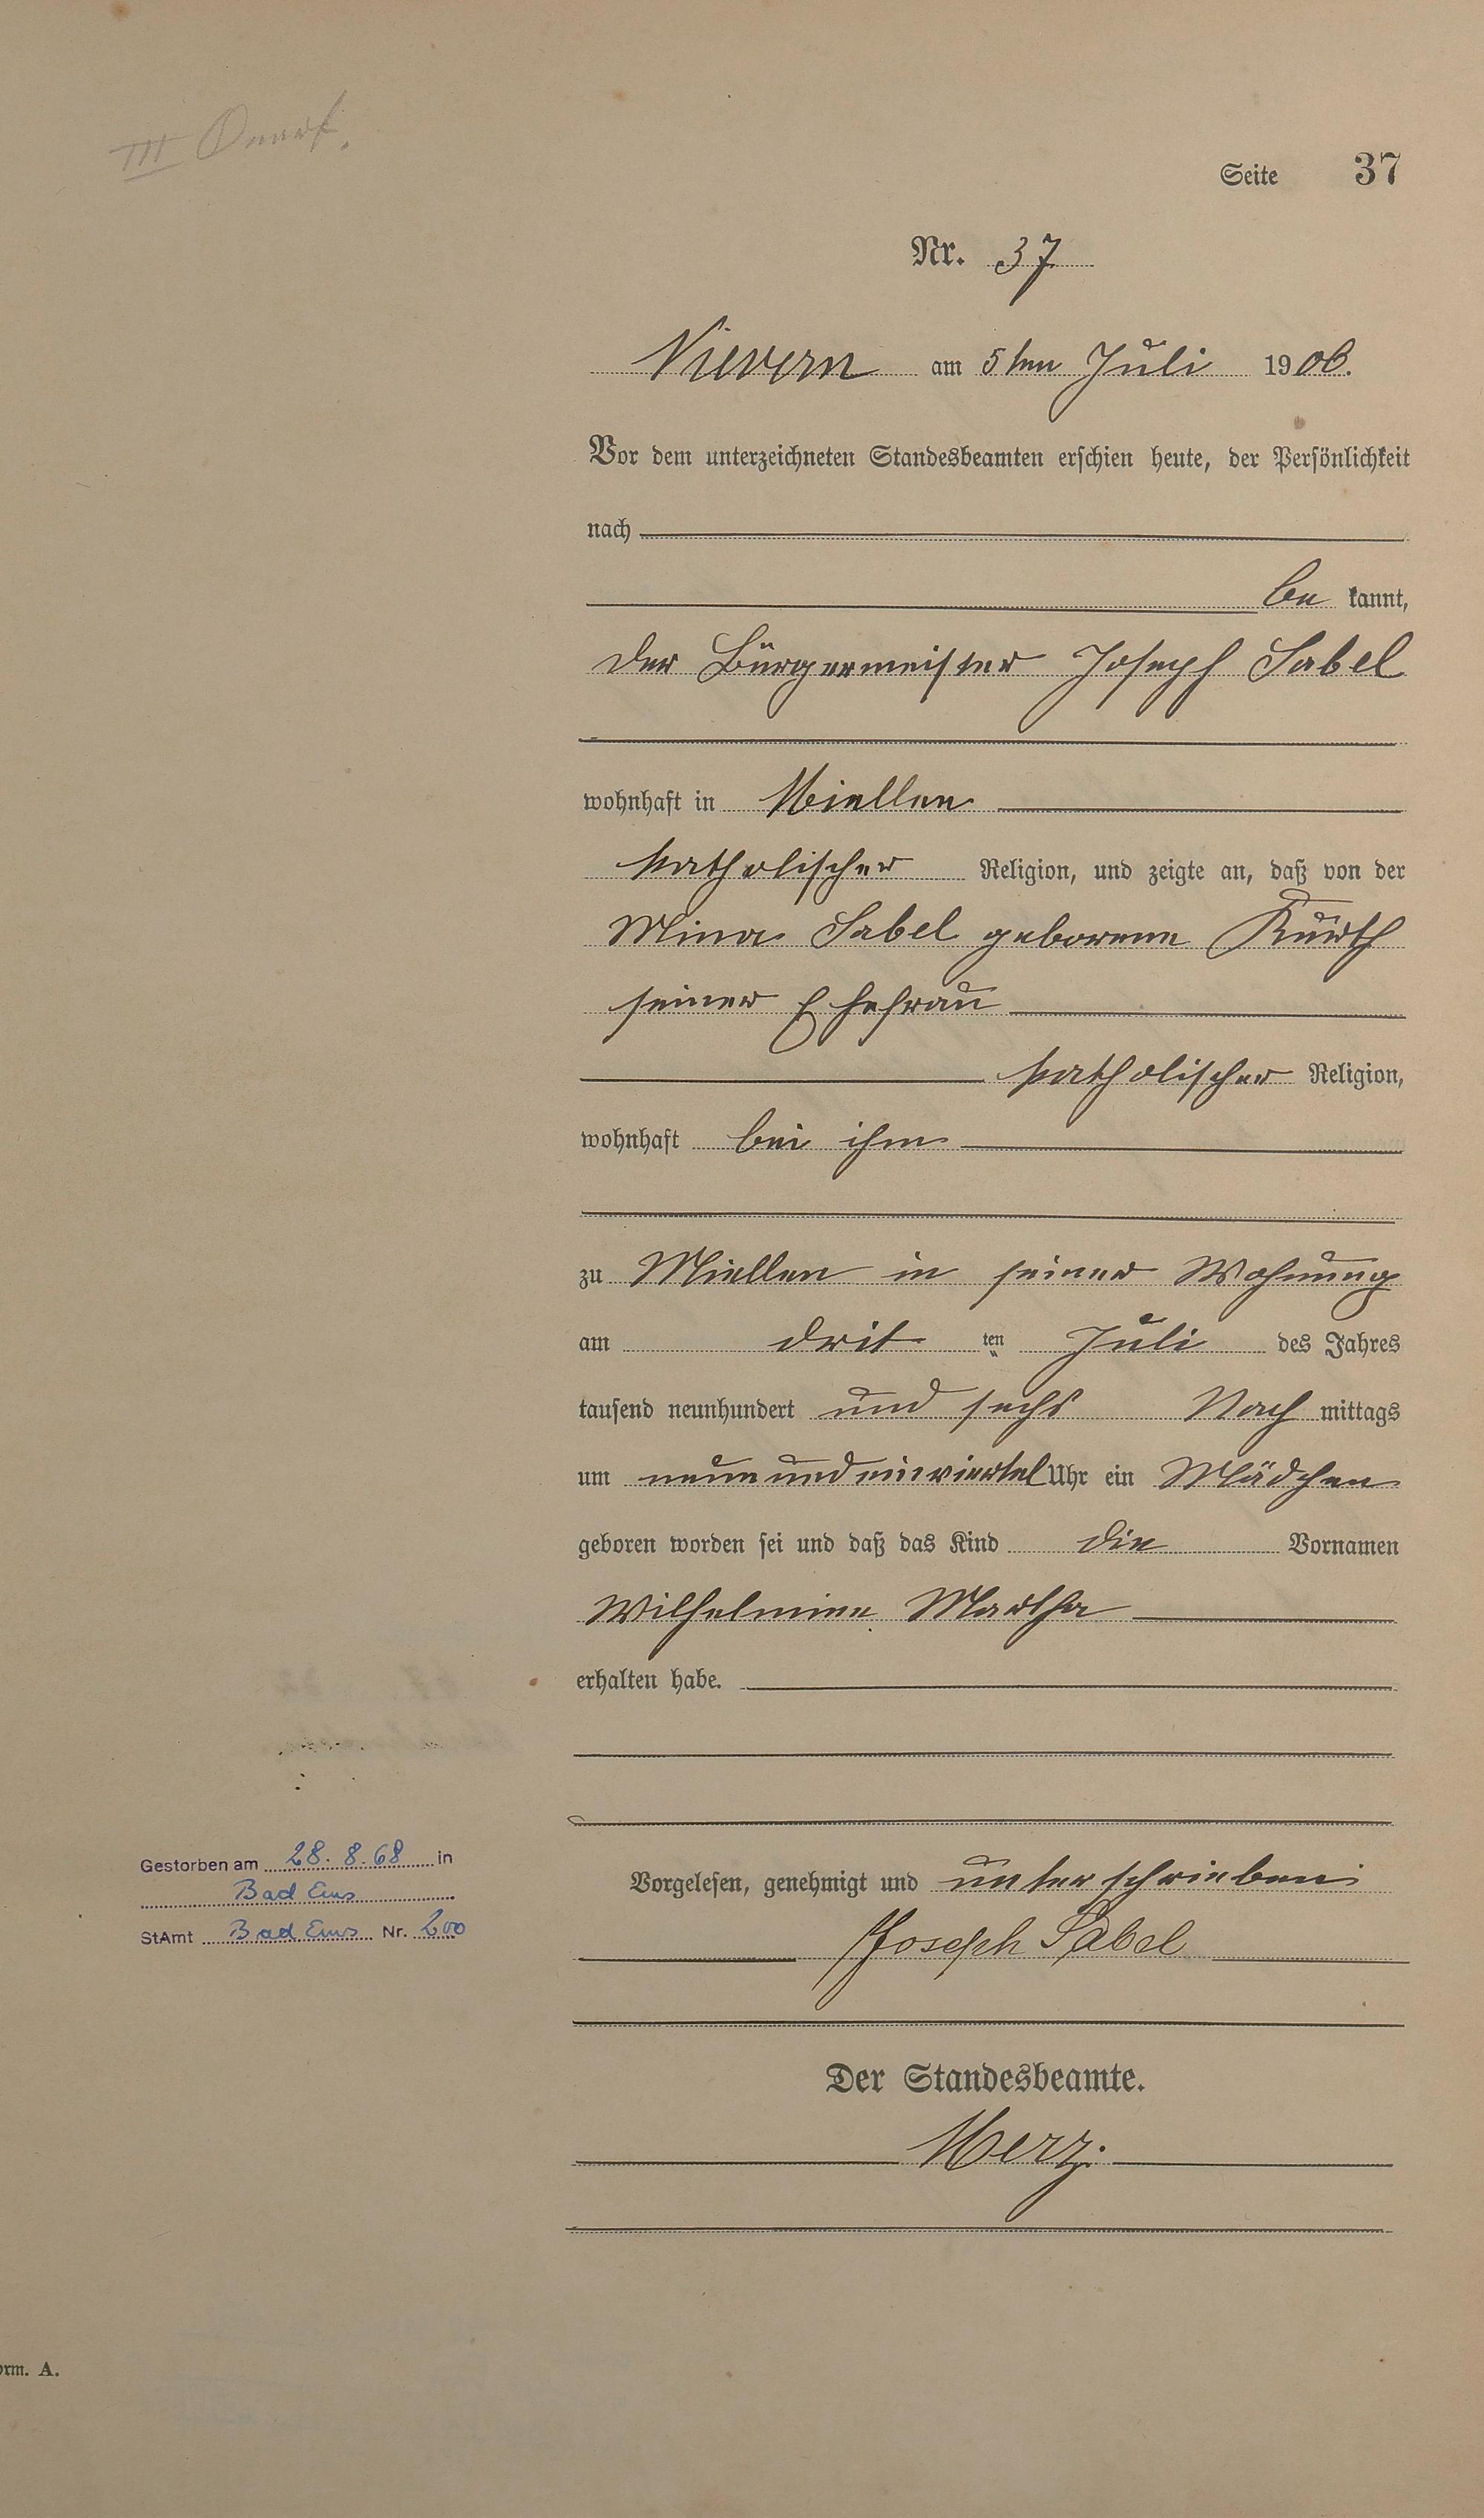 III Quart.
Seite 37
Nr. 37
Nievern am 5ten Juli 1906.
Vor dem unterzeichneten Standesbeamten erschien heute, der Persönlichkeit
nach
be kannt,
der Bürgermeister Joseph Sabel
wohnhaft in Miellen
katholischer Religion, und zeigte an, daß von der
Mina Sabel geborene Kurth
seiner Ehefrau
katholischer Religion,
wohnhaft bei ihm
zu Miellen in seiner Wohnung
am drit ten Juli des Jahres
tausend neunhundert und sechs Nach mittags
um neun und einviertel Uhr ein Mädchen
geboren worden sei und daß das Kind die Vornamen
Wilhelmine Martha
erhalten habe.
Gestorben am 28.8.68 in
Bad Ems
StAmt Bad Ems Nr. 200
Vorgelesen, genehmigt und unterschrieben
Joseph Sabel
Der Standesbeamte.
Merz.
orm. A.